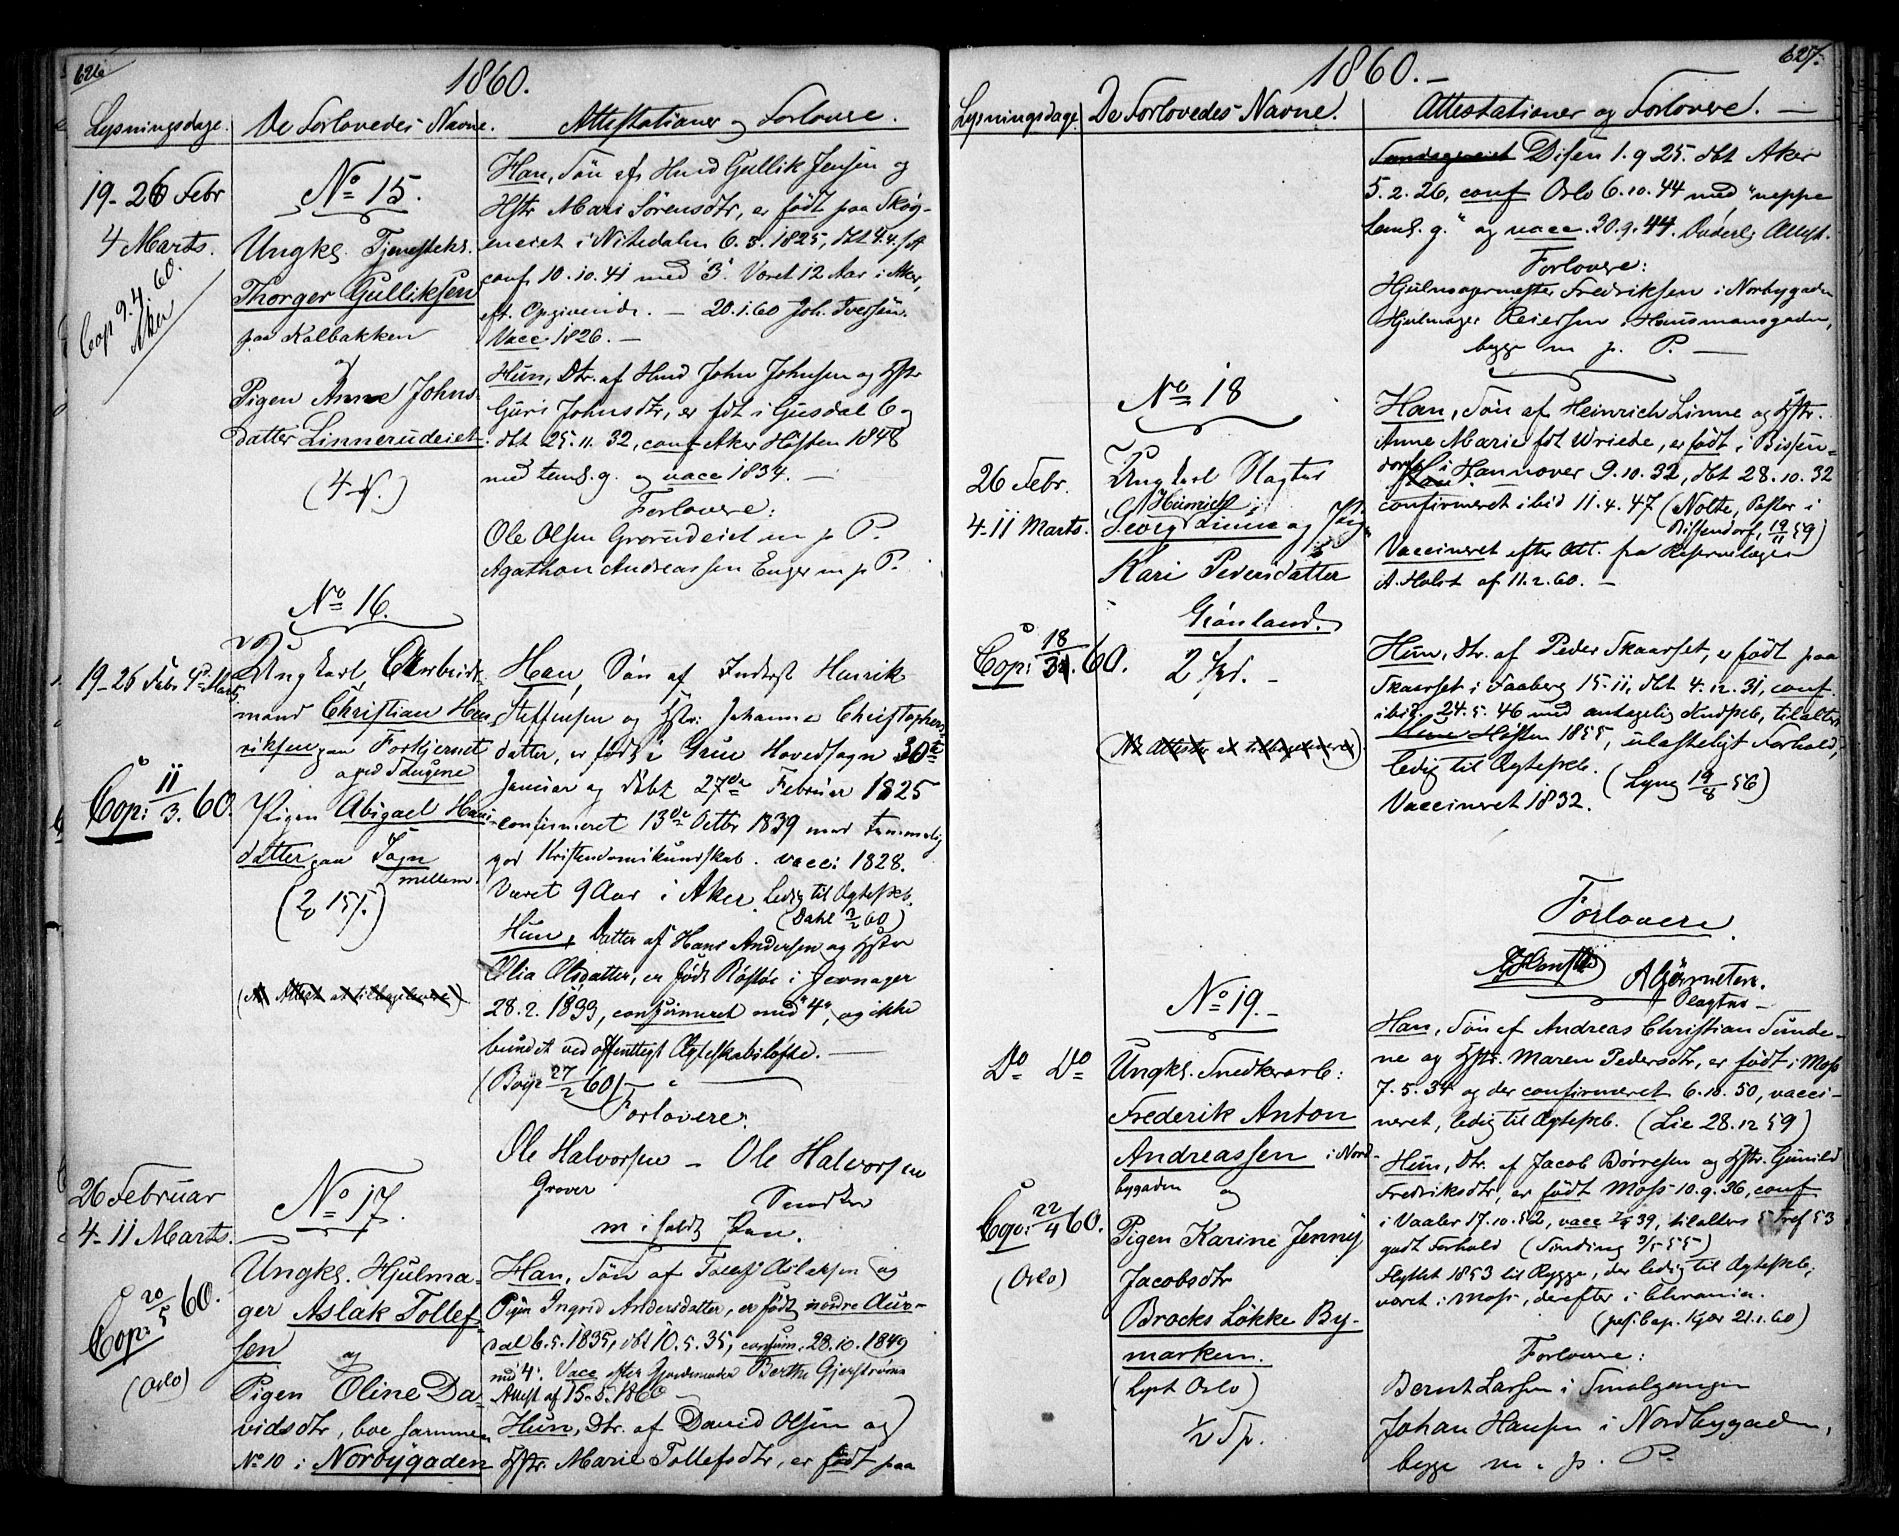 626
1860.
Lysningsdage. De Forlovedes Navne. Attestationer og Forlovere.
19-26 Febr
4 Marts.
Cop 9.4.60.
Aker
No 15.
Ungk. Tjenestek.
Thorger Gulliksen
paa Kalbakken
og
Pigen Anne Johns
datter Linnerudeiet
Han, Søn af Hmd Gullik Jensen og
Hstr Mari Sørensdtr, er født paa Skøy-
eneiet i Nitedalen 6.3.1825, dbt 4.4.
conf 10.10.41 med "3". Været 12 Aar i Aker,
eft. Opgivende. — 20.1.60 Joh. Iversen.
Vacc 1826. —
Hun, Dtr. af Hmd John Johnsen og Hstr
Guri Johnsdtr, er fdt i Gusdal 6 og
dbt 25.11.32, conf Aker Høsten 1848
med teml. g. og vacc 1834. —
Forlovere:
Ole Olsen Grorudeiet m p P.
Agathon Andreassen Enger m p P.
No 16.
19-26 Febr 4 Marts
Cop: 11/3.60.
Ungkarl, Arbeids-
mand Christian Hen-
riksen paa Forkjernet
og
Pigen Abigael Hans-
datter paa Sogn
mellem.
Han, Søn af Inderst Henrik
Steffensen og Hstr: Johanne Christophers-
datter, er født i Grue Hovedsogn 30te
Januar og døbt 27de Februar 1825
confirmeret 13de Octbr 1839 med temmelig
god Kristendomskundskab. vacc: 1828.
Været 9 Aar i Aker. Ledig til Ægteskb.
(Dahl 3/2 60)
Hun, Datter af Hans Andersen og Hstr
Olia Olsdatter, er født Røstøe i Jevnager
28.2.1833, confirmeret med "4", og ikke
bundet ved offentligt Ægteskabsløfte. —
27/2 60)
Forlovere:
Ole Halvorsen — Ole Halvorsen
Grover
m i holdt Pen.
26 Februar
4-11 Marts.
Cop: 20/5 60.
(Oslo)
No 17.
Ungk. Hjulma-
ger Aslak Tollef-
sen
og
Pigen Oline Da-
vidsdtr, boe sammen
No 10 i Norbygaden
Han, Søn af Tollef Aslaksen og
Pige Ingrid Andersdatter, er født nordre Aur-
dal 6.5.1835, dbt 10.5.35, confirm. 28.10.1849
med "4". Vacc efter Gjordemoder Berthe Gjerstrøms
Attest af 15.5.1860
Hun, Dtr. af David Olsen og
Hstr. Marie Tollefsdtr, er født paa
627.
1860. —
Lysningsdage. De Forlovedes Navne. Attestationer og Forlovere. —
Disen 1.9.25. dbt Aker
5.2.26, conf Oslo 6.10.44 med "neppe
teml. g." og vacc. 30.9.44. Attst.
Forlovere:
Hjulmagermester Fredriksen i Norbygaden
Hjulmager Reiersen i Hausmansgaden,
begge m p. P. —
No 18
26 Febr.
4-11 Marts.
Cop: 18/3.60.
Ungkarl Slagter
Heinrich
Georg Linne og Pig
Kari Pedersdatter
Grønland.
Han, Søn af Heinrich Linne og Hstr.
Anne Marie fdt Wriede, er født i Bissen-
dorf i Hannover 9.10.32, dbt 28.10.32
confirmeret ibid 11.4.47 (Nolte, Pastor i
Bissendorf, 19/11 59)
Vaccineret efter Att. fra Reservelæge
A. Holst af 11.2.60. —
Hun, Dtr. af Peder Skaarset, er født paa
Skaarset i Faaberg 15.11, dbt 4.12.31, conf.
ibid. 24.5.46 med antagelig Kndskb, tilalters
Høsten 1855, ulasteligt Forhold,
ledig til Ægteskb.
Vaccineret 1832. (Lyng 19/8 56)
Forlovere
Slagter —
No 19. —
Do Do
Cop: 22/4 60.
(Oslo)
Ungk. Snedkerarb:
Frederik Anton
Andreassen i Nord-
bygaden
og
Pigen Karine Jenny
Jacobsdtr
Brocks Løkke By-
marken.
(Lyst Oslo)
1/2 Sp.
Han, Søn af Andreas Christian Sunde-
ne og Hstr. Maren Pedersdtr, er født i Moss
7.5.34 og der confirmeret 6.10.50, vacci-
neret, ledig til Ægteskb. (Lie 28.12.59)
Hun, Dtr. af Jacob Børresen og Hstr. Gunild
Fredriksdtr, er født Moss 10.9.36, conf
i Vaaler 17.10.52, vacc 39, tilalters 53
godt Forhold (Sinding 55)
Flyttet 1853 til Rygge, der ledig til Ægteskb,
været i Moss, derefter i Chrania.
(pers. Cap. Kjær 21.1.60)
Forlovere:
Bernt Larsen i Smalgangen
Johan Hansen i Nordbygaden,
begge m. p. P.